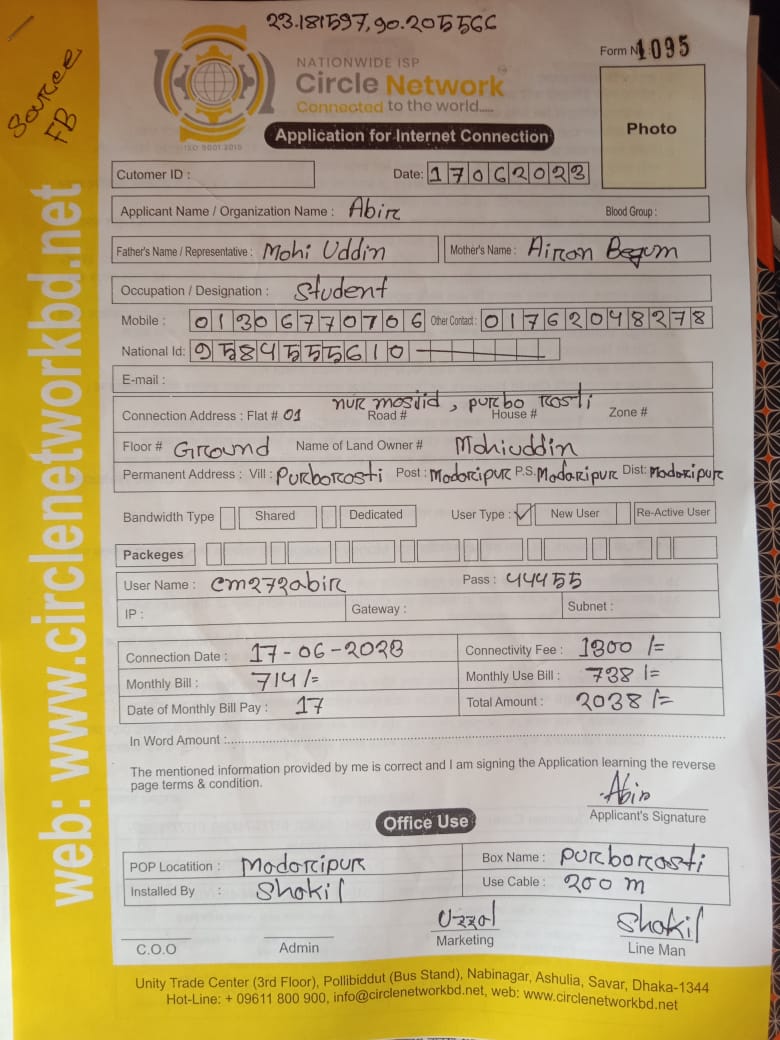 23.181597,90.205566
Source
FB
NATIONWIDE ISP
Circle Network
Connected to the world.....
ISO 9001 2015
Form No 1095
Photo
Application for Internet Connection
Cutomer ID :
Date: 17062023
Applicant Name / Organization Name : Abir
Blood Group :
Father's Name / Representative : Mohi Uddin
Mother's Name : Airon Begum
Occupation / Designation : Student
Mobile : 01306770706 Other Contact : 01762048278
National Id: 9584555610
E-mail :
nur mosjid, purbo rosti
Connection Address : Flat # 01 Road # House # Zone #
Floor # Ground Name of Land Owner # Mohiuddin
Permanent Address : Vill : Purborosti Post : Madaripur P.S. Madaripur Dist: Madaripur
Bandwidth Type Shared Dedicated User Type : ✓ New User Re-Active User
Packeges
User Name : cm272abir Pass : 44455
IP : Gateway : Subnet :
Connection Date : 17-06-2023 Connectivity Fee : 1300 /=
Monthly Bill : 714/= Monthly Use Bill : 738 /=
Date of Monthly Bill Pay : 17 Total Amount : 2038 /=
In Word Amount :
The mentioned information provided by me is correct and I am signing the Application learning the reverse
page terms & condition.
Abir
Applicant's Signature
Office Use
POP Locatition : Madaripur Box Name : purborosti
Installed By : Shakil Use Cable : 200 m
Uzzal Shakil
C.O.O Admin Marketing Line Man
Unity Trade Center (3rd Floor), Pollibiddut (Bus Stand), Nabinagar, Ashulia, Savar, Dhaka-1344
Hot-Line: + 09611 800 900, info@circlenetworkbd.net, web: www.circlenetworkbd.net
web: www.circlenetworkbd.net